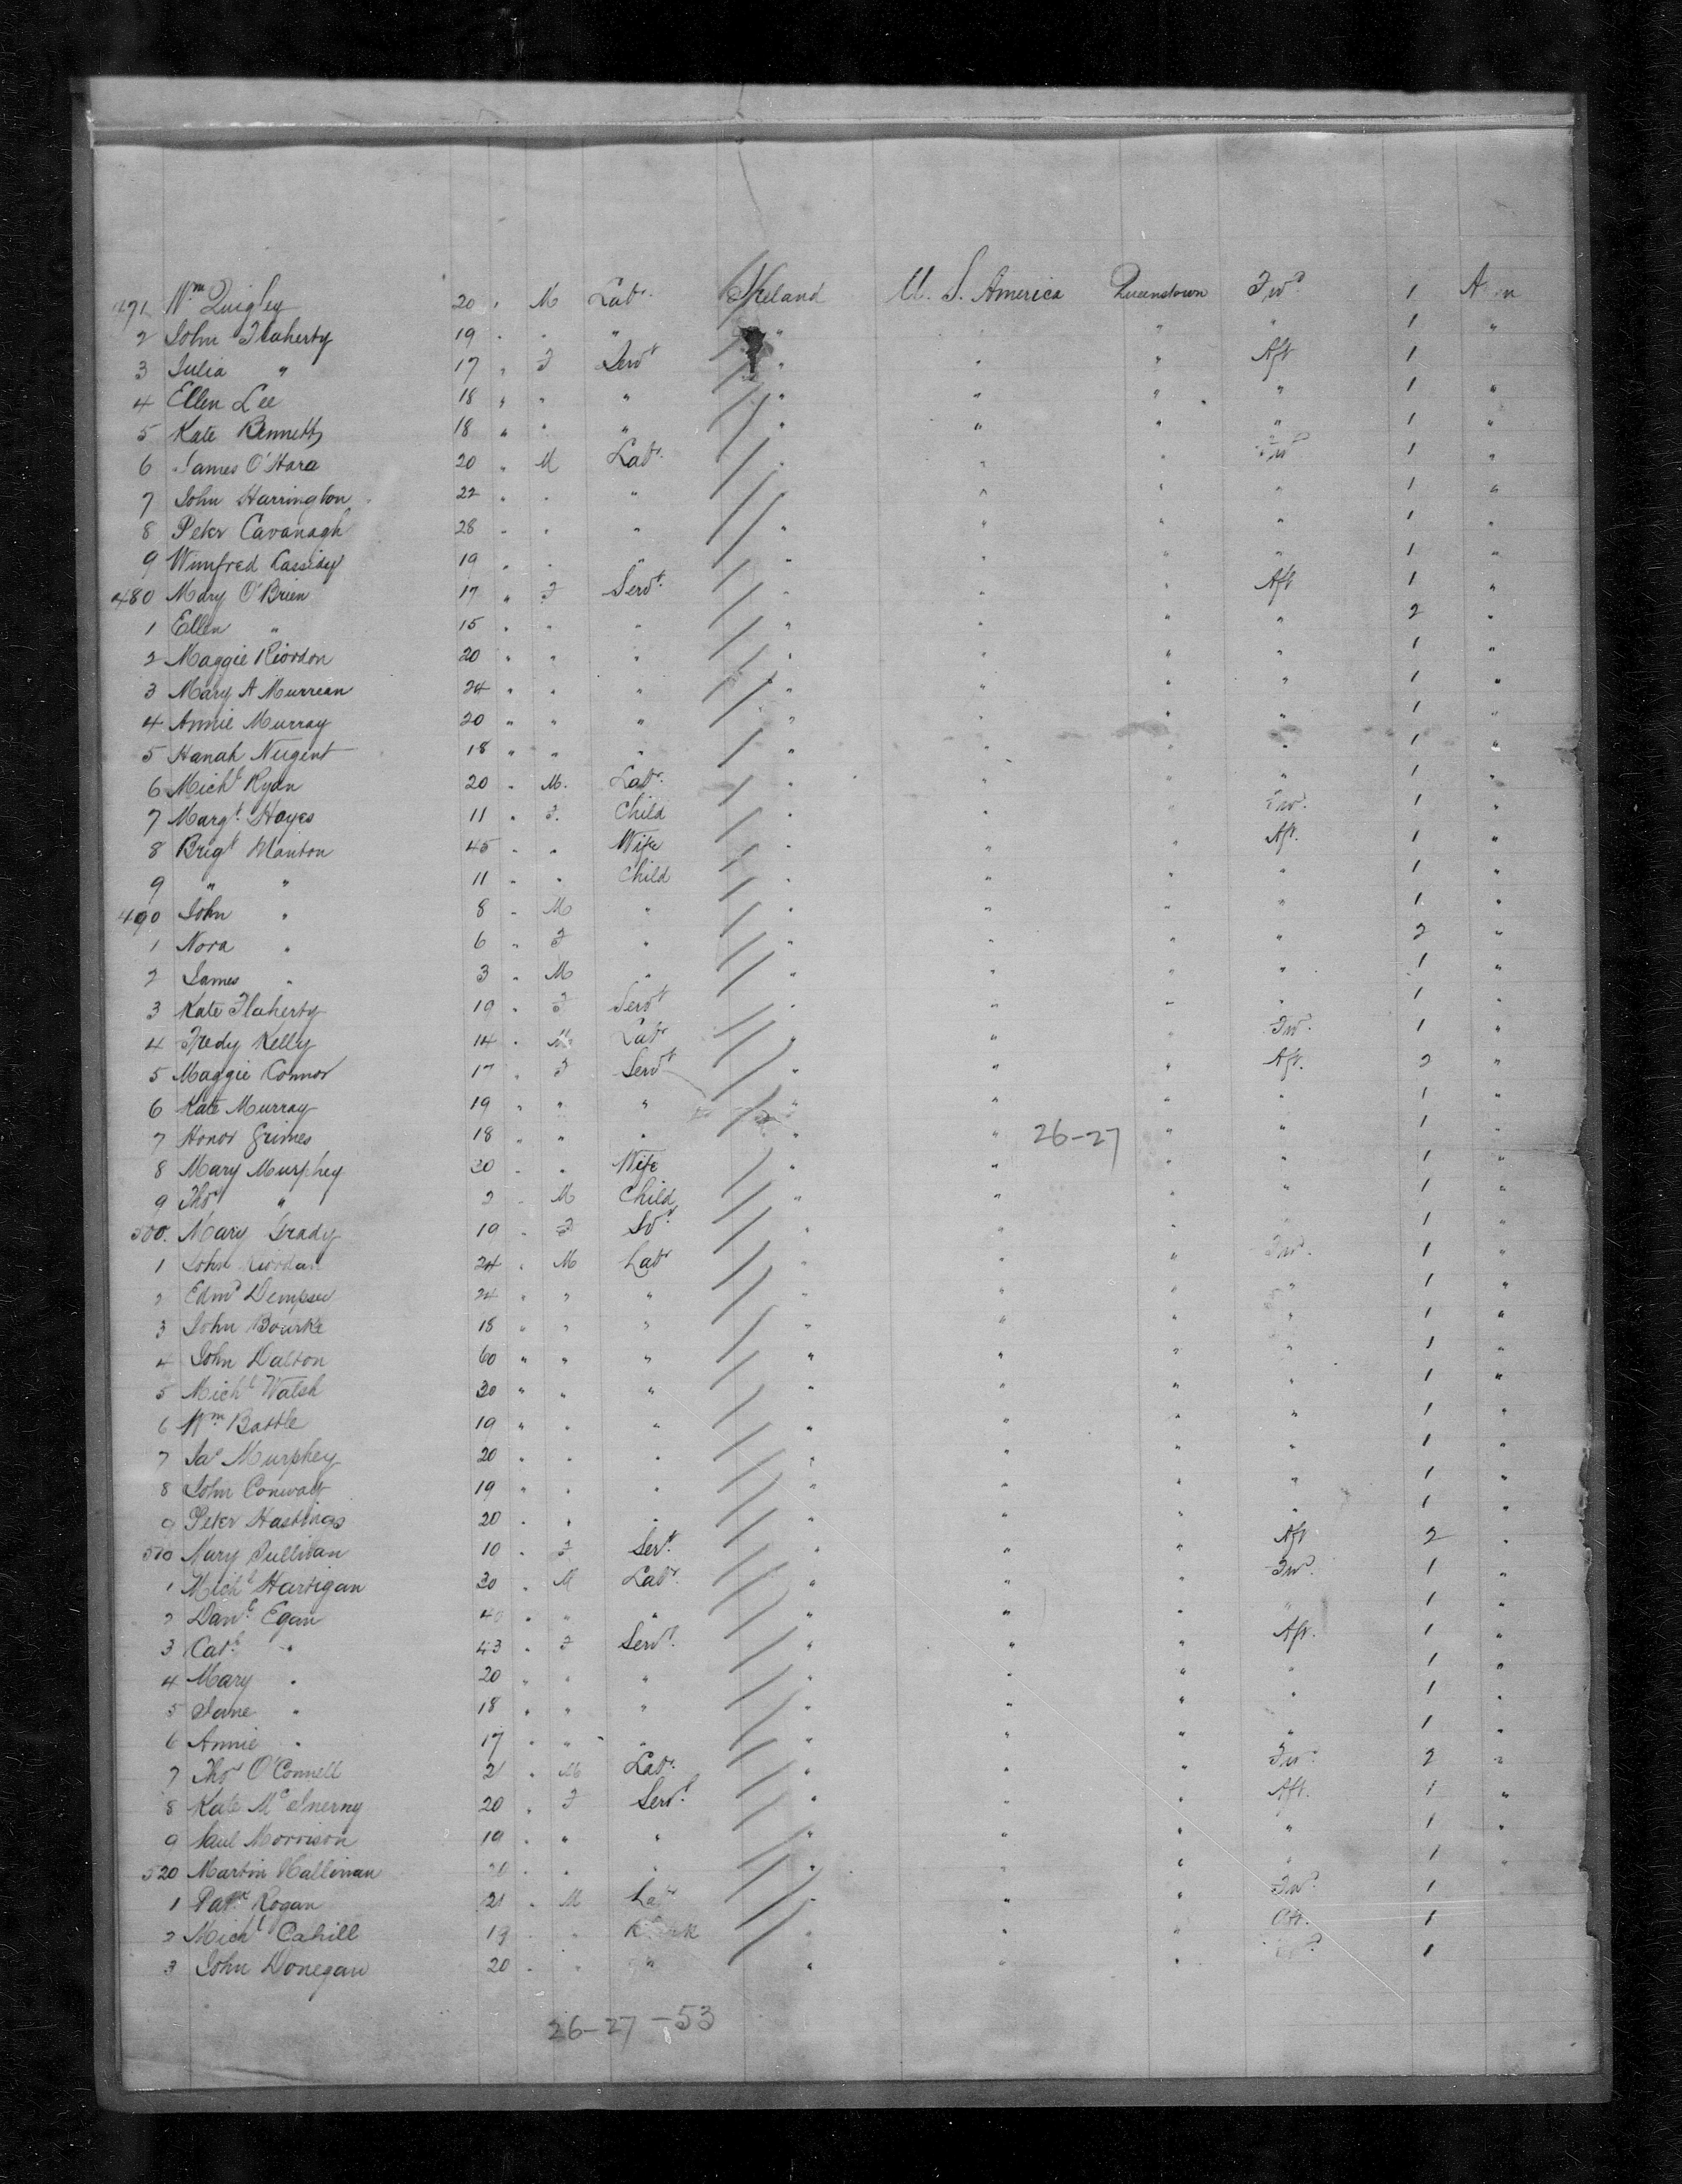 471 Wm Quigley 20 " M Labr. Ireland U. S. America Queenstown Fwd 1
2 John Flaherty 19 " " " " " " " 1 "
3 Julia " 17 " F Servt " " " Aft 1
4 Ellen Lee 18 " " " " " " " 1 "
5 Kate Bennett 18 " " " " " " " 1 "
6 James O'Hara 20 " M Labr. " " " Fwd 1 "
7 John Harrington 22 " " " " " " " 1 "
8 Peter Cavanagh 28 " " " " " " " 1 "
9 Winifred Cassidy 19 " " " " " " " 1 "
480 Mary O'Brien 17 " F Servt. " " " Aft 1 "
1 Ellen " 15 " " " " " " " 2 "
2 Maggie Riordon 20 " " " " " " " 1 "
3 Mary A Murrean 24 " " " " " " " 1 "
4 Annie Murray 20 " " " " " " " 1 "
5 Hanah Nugent 18 " " " " " " " 1 "
6 Michl Ryan 20 " M. Labr. " " " " 1 "
7 Margt. Hayes 11 " F. Child " " " Fwd. 1 "
8 Brigt Manton 45 " " Wife " " " Aft. 1 "
9 " " 11 " " Child " " " " 1 "
490 John " 8 " M " " " " " 1 "
1 Nora " 6 " F " " " " " 2 "
2 James " 3 " M " " " " " 1 "
3 Kate Flaherty 19 " F Servt " " " " 1 "
4 Fredy Kelly 14 " M Labr " " " Fwd. 1 "
5 Maggie Connor 17 " F Servt " " " Aft. 2 "
6 Kate Murray 19 " " " " " " " 1 "
7 Honor Grimes 18 " " " " " 26-27 " " 1 "
8 Mary Murphey 30 " " Wife " " " " 1 "
9 Thos " 2 " M Child " " " " 1 "
500. Mary Grady 19 " F Svt " " " " 1 "
1 John Riordan 24 " M Labr " " " Fwd. 1 "
2 Edmd Dempsey 24 " " " " " " " 1 "
3 John Bourke 18 " " " " " " " 1 "
4 John Dalton 60 " " " " " " " 1 "
5 Michl Walsh 30 " " " " " " " 1 "
6 Wm Battle 19 " " " " " " " 1 "
7 Jas Murphey 20 " " " " " " " 1 "
8 John Conway 19 " " " " " " " 1 "
9 Peter Hastings 20 " " " " " " " 1 "
510 Mary Sullivan 10 " F Servt. " " " Aft 2 "
1 Michl Hartigan 30 " M Labr. " " " Fwd. 1 "
2 Danl. Egan 40 " " " " " " " 1 "
3 Cath " 43 " F Servt. " " " Aft. 1 "
4 Mary " 20 " " " " " " " 1 "
5 Jane " 18 " " " " " " " 1 "
6 Annie " 17 " " " " " " " 1 "
7 Thos O'Connell 21 " M Labr. " " " Fwd 2 "
8 Kate McInerny 20 " F Servt. " " " Aft. 1 "
9 Morrison 19 " " " " " " " 1 "
520 Martin Hallinan " " " " " " " 1 "
1 Patk Rogan 21 " M Labr " " " Fwd. 1
2 Michl Cahill 19 " " " " " Aft. 1
3 John Donegan 20 " " " " " " 1
26-27-53